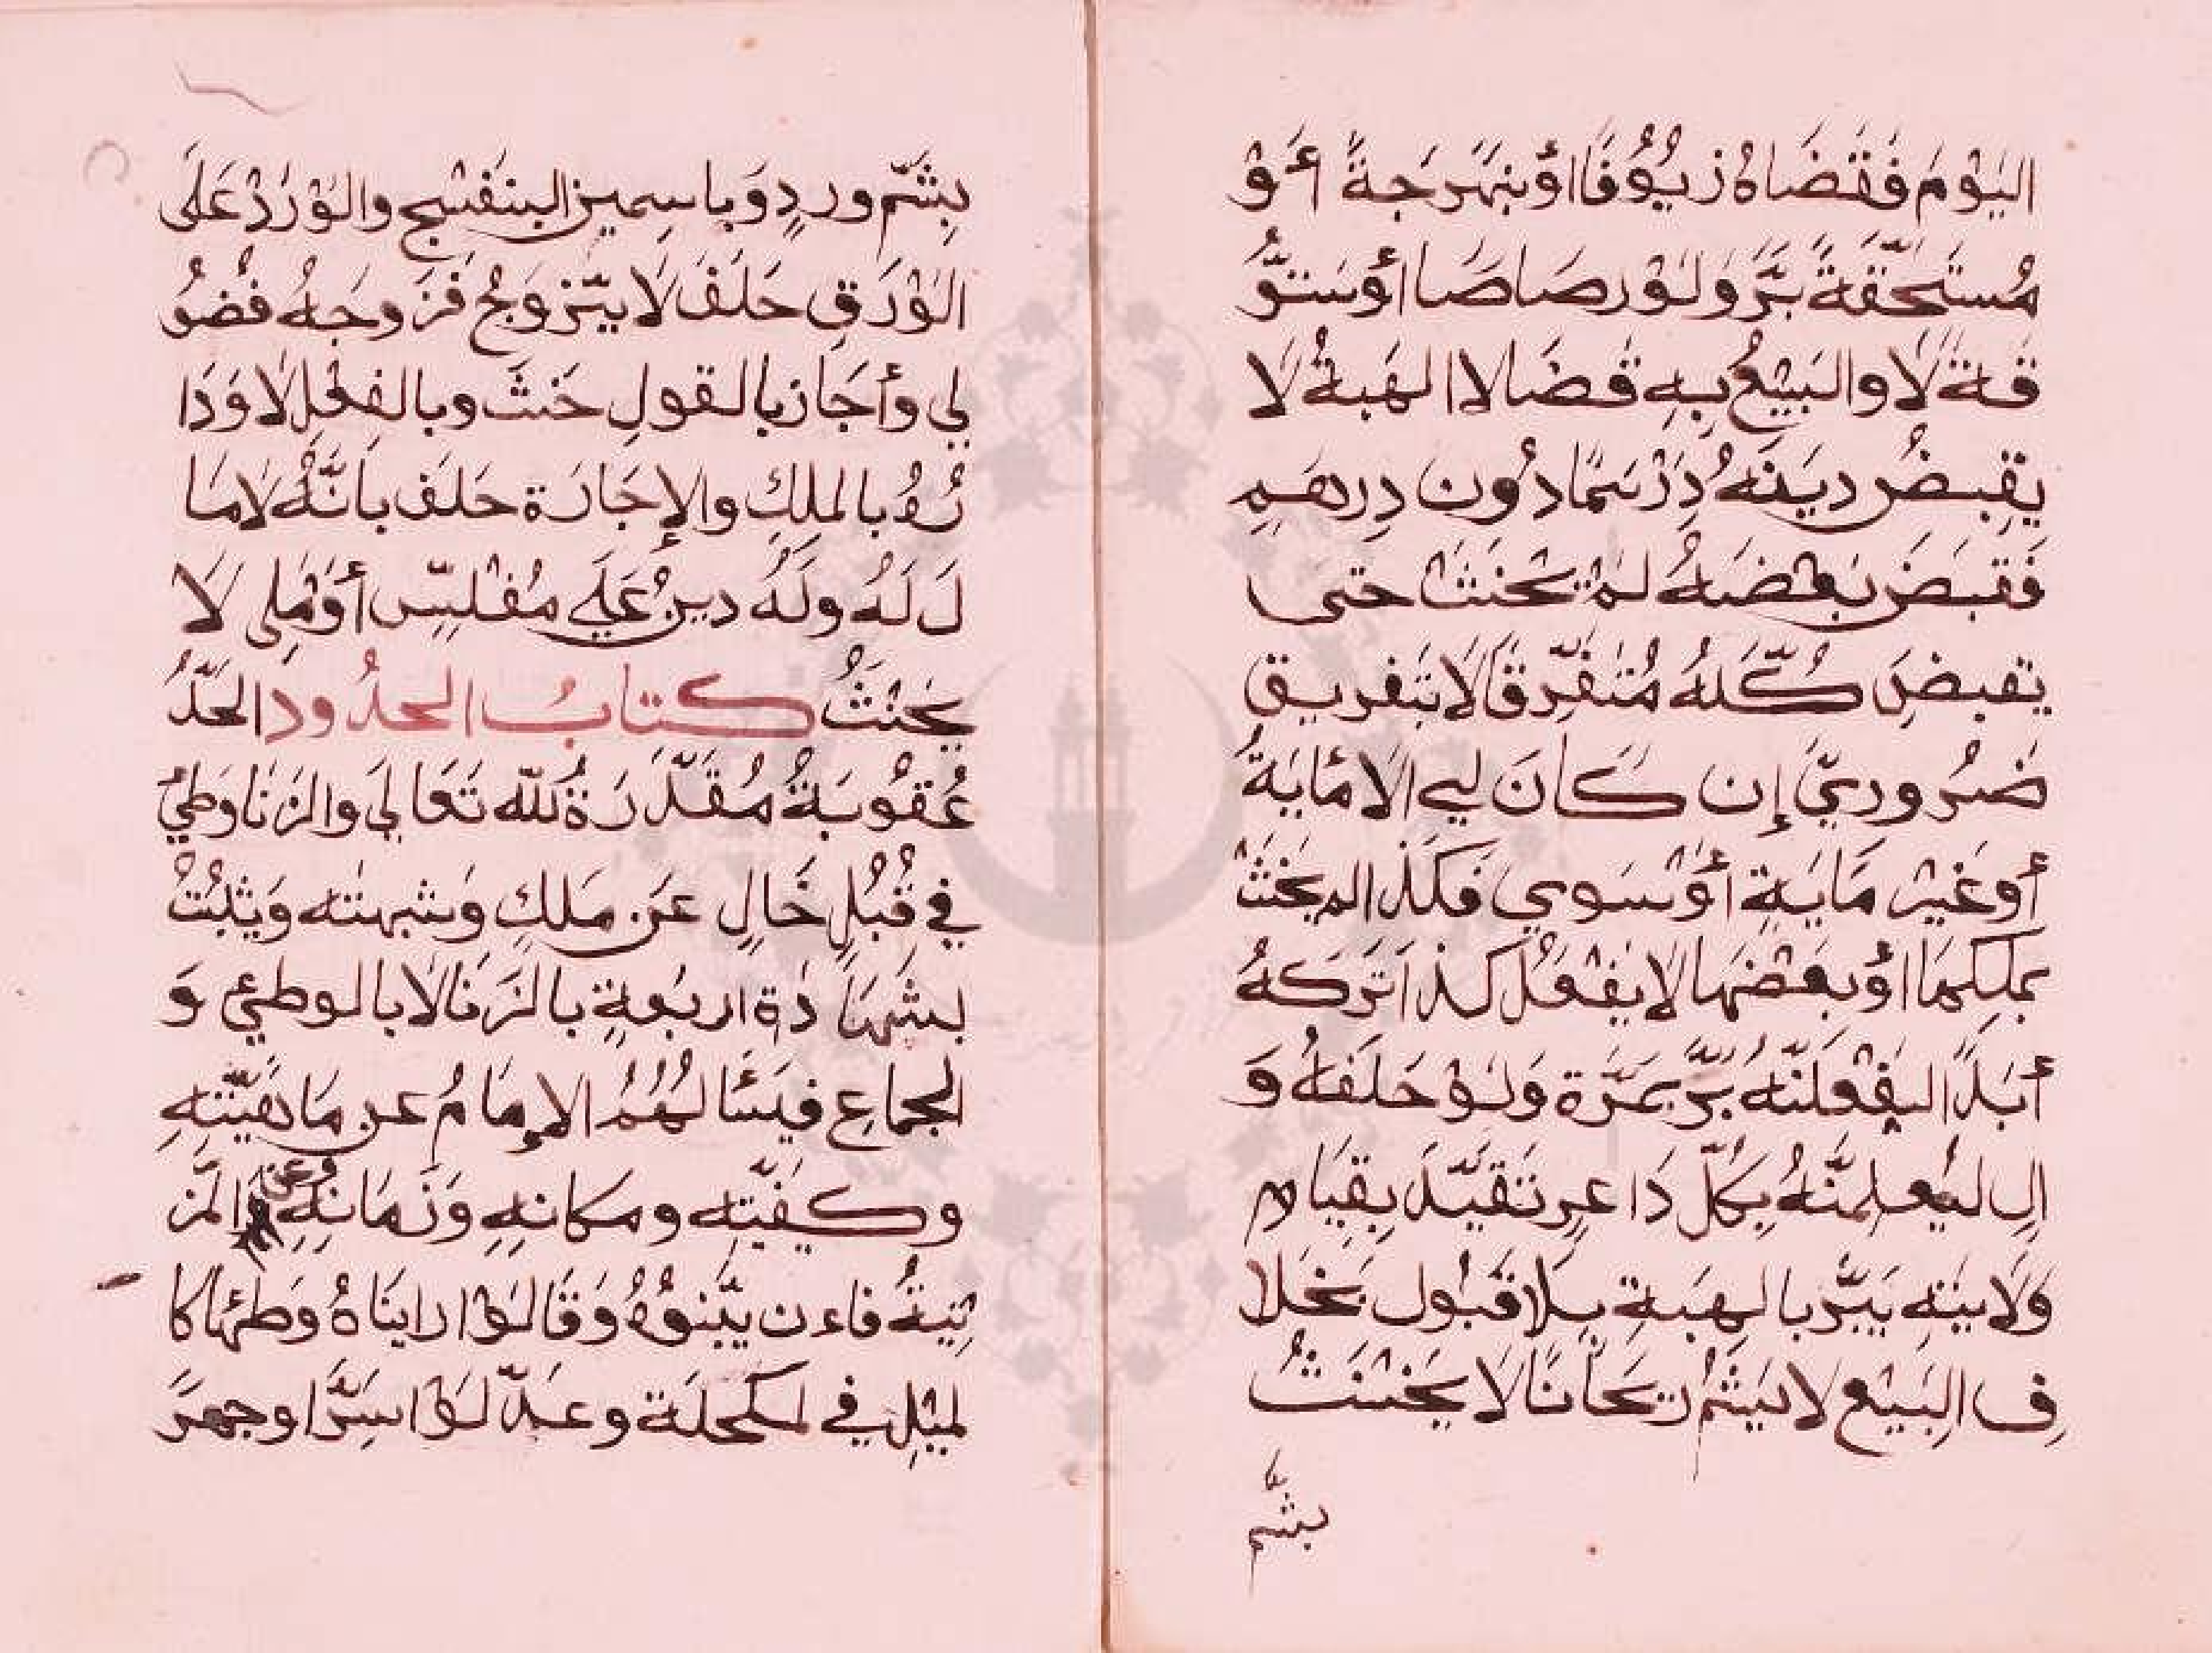 اليَوْمَ فَقَضَاهُ زيُوُفًا اؤنبَهْرَجةً أَوْ
مُستَحَّقةً بَرَّ وَلَوْ رصَاصَا اؤسَتوُّ
قة لَا والبَيْعُ بِهِ قضَا لا الهَبةُ لا
يَقبِضُ ديَنَهُ دِرْهَمًا دُون دِرهَمِ
فَقبَضَ بَعْضَهُ لَمْ يَحْنَثْ حتى
يَقبضَ كُلَّهُ مُتفَرِّقًا لَا بَتفريق
ضُروريّ إن كَانَ لِي الَا مُايَةُ
أو غَيْر مَايَةٍ أوْ سَوي فَكَذا لم يَحْنَثْ
بمَلِكهَا اؤبَعْضهَا لَا يَفْعَلُ كذا تَرَكهُ
أبَدًا ليَفْعَلَنّهُ بَرَّ بمَرَّة وَلَوْ حَلَفهُ وَ
الٍ ليُعلِمَنَّهُ بِكُلِّ دَاعِرٍ تَقَيَّدَ بِقِيَام
وَلَايتهِ يَبَرُّ بالهِبَةِ بِلَا قبُول بخَلا
فِ البَيْع لا يَشَمُّ رَيحَانًا لَا يَحْنَثْ
بشَم
بِشَمّ وردٍ وَياسِمين البنفَسْج والوَرْدُ عَلَى
الوَرَقِ حَلَفَ لَا يتَزوَجُ فَزَوجَهُ فُضوُ
لي وأجَازَ بالقولِ حَنثَ وبالفِعْلِ لَا وَدَا
رُهُ بالملِكِ والإجَارَة حلَفَ بانَّهُ لَا مَا
لَ لَهُ وَلَهُ دينُ عَلَي مُفْلِسّ أوْ مَلِي لَا
يَحْنَثُ كتابُ الحدُود الحَدُّ
عُقوُبَةُ مُقَدَّرَةُ للّه تَعَالي والزنَا وَطيُ
في قُبُلٍ خَالٍ عَن مَلكٍ وَشبهتَه وَيَثبُتُ
بشَهَادَة اربَعةٍ بالزَنا لَا بالوطيءِ وَ
الجماعِ فيَسَألهُمُ الامَامُ عن مَاهَيّتهِ
وكيفيّتِه ومكانهِ وَزمَانهِ وعَن المَز
نِيَةُ فاءن بيَّنوُهُ وَقَالوْا رايناهُ وَطئهَا كا
لميْلِ في المكحلَة وعدّلوْا سِرًّا وجهرً